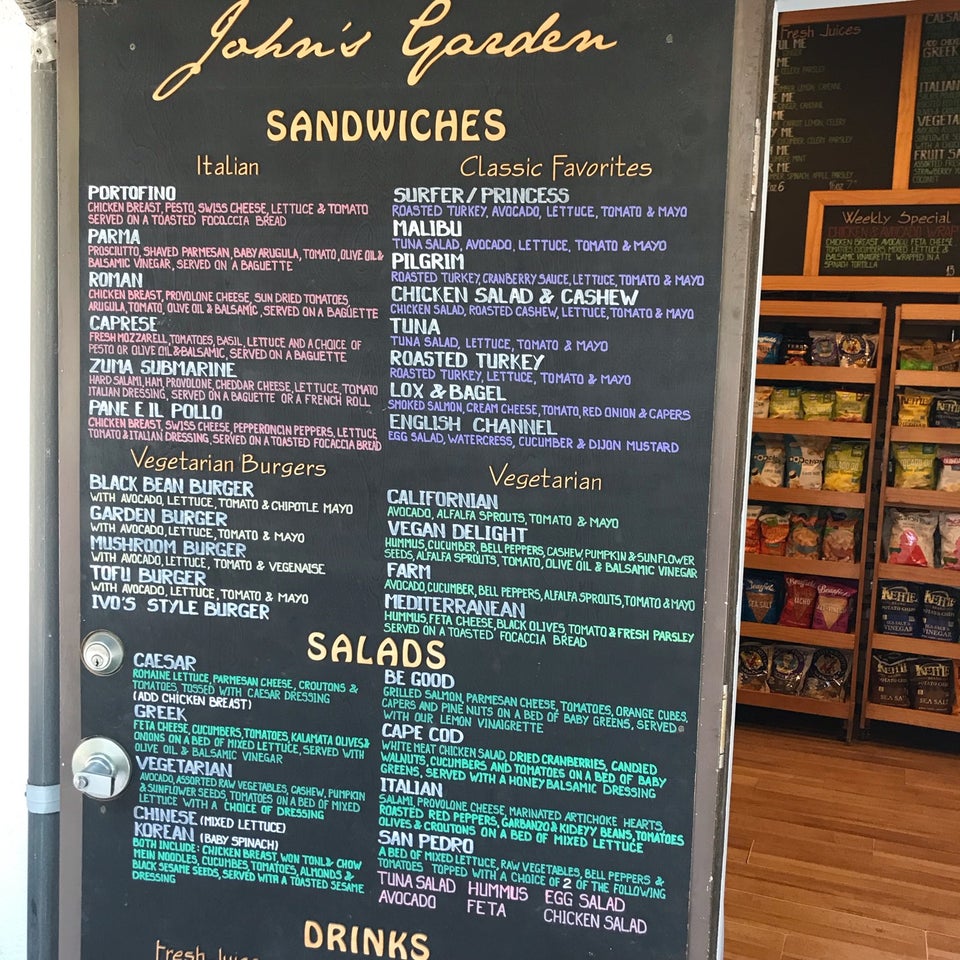 John's Garden
SANDWICHES
Italian
PORTOFINO
CHICKEN BREAST, PESTO, SWISS CHEESE, LETTUCE & TOMATO
SERVED ON A TOASTED FOCOCCIA BREAD
PARMA
PROSCIUTTO, SHAVED PARMESAN, BABY ARUGULA, TOMATO, OLIVE OIL &
BALSAMIC VINEGAR, SERVED ON A BAGUETTE
ROMAN
CHICKEN BREAST, PROVOLONE CHEESE, SUN DRIED TOMATOES,
ARUGULA, TOMATO, OLIVE OIL & BALSAMIC, SERVED ON A BAGUETTE
CAPRESE
FRESH MOZZARELL, TOMATOES, BASIL, LETTUCE AND A CHOICE OF
PESTO OR OLIVE OIL & BALSAMIC, SERVED ON A BAGUETTE
ZUMA SUBMARINE
HARD SALAMI, HAM, PROVOLONE, CHEDDAR CHEESE, LETTUCE, TOMATO
ITALIAN DRESSING, SERVED ON A BAGUETTE OR A FRENCH ROLL
PANE E IL POLLO
CHICKEN BREAST, SWISS CHEESE, PEPPERONCIN PEPPERS, LETTUCE,
TOMATO & ITALIAN DRESSING, SERVED ON A TOASTED FOCACCIA BREAD
Classic Favorites
SURFER / PRINCESS
ROASTED TURKEY, AVOCADO, LETTUCE, TOMATO & MAYO
MALIBU
TUNA SALAD, AVOCADO, LETTUCE, TOMATO & MAYO
PILGRIM
ROASTED TURKEY, CRANBERRY SAUCE, LETTUCE, TOMATO & MAYO
CHICKEN SALAD & CASHEW
CHICKEN SALAD, ROASTED CASHEW, LETTUCE, TOMATO & MAYO
TUNA
TUNA SALAD, LETTUCE, TOMATO & MAYO
ROASTED TURKEY
ROASTED TURKEY, LETTUCE, TOMATO & MAYO
LOX & BAGEL
SMOKED SALMON, CREAM CHEESE, TOMATO, RED ONION & CAPERS
ENGLISH CHANNEL
EGG SALAD, WATERCRESS, CUCUMBER & DIJON MUSTARD
Vegetarian Burgers
BLACK BEAN BURGER
WITH AVOCADO, LETTUCE, TOMATO & CHIPOTLE MAYO
GARDEN BURGER
WITH AVOCADO, LETTUCE, TOMATO & MAYO
MUSHROOM BURGER
WITH AVOCADO, LETTUCE, TOMATO & VEGENAISE
TOFU BURGER
WITH AVOCADO, LETTUCE, TOMATO & MAYO
IVO'S STYLE BURGER
Vegetarian
CALIFORNIAN
AVOCADO, ALFALFA SPROUTS, TOMATO & MAYO
VEGAN DELIGHT
HUMMUS, CUCUMBER, BELL PEPPERS, CASHEW, PUMPKIN & SUNFLOWER
SEEDS, ALFALFA SPROUTS, TOMATO, OLIVE OIL & BALSAMIC VINEGAR
FARM
AVOCADO, CUCUMBER, BELL PEPPERS, ALFALFA SPROUTS, TOMATO & MAYO
MEDITERRANEAN
HUMMUS, FETA CHEESE, BLACK OLIVES, TOMATO & FRESH PARSLEY
SERVED ON A TOASTED FOCACCIA BREAD
SALADS
CAESAR
ROMAINE LETTUCE, PARMESAN CHEESE, CROUTONS &
TOMATOES, TOSSED WITH CAESAR DRESSING
(ADD CHICKEN BREAST)
GREEK
FETA CHEESE, CUCUMBERS, TOMATOES, KALAMATA OLIVES &
ONIONS ON A BED OF MIXED LETTUCE, SERVED WITH
OLIVE OIL & BALSAMIC VINEGAR
VEGETARIAN
AVOCADO, ASSORTED RAW VEGETABLES, CASHEW, PUMPKIN
& SUNFLOWER SEEDS, TOMATOES ON A BED OF MIXED
LETTUCE WITH A CHOICE OF DRESSING
CHINESE (MIXED LETTUCE)
KOREAN (BABY SPINACH)
BOTH INCLUDE: CHICKEN BREAST, WON TONL & CHOW
MEIN NOODLES, CUCUMBES, TOMATOES, ALMONDS &
BLACK SESAME SEEDS, SERVED WITH A TOASTED SESAME
DRESSING
BE GOOD
GRILLED SALMON, PARMESAN CHEESE, TOMATOES, ORANGE CUBES,
CAPERS AND PINE NUTS ON A BED OF BABY GREENS, SERVED
WITH OUR LEMON VINAIGRETTE
CAPE COD
WHITE MEAT CHICKEN SALAD, DRIED CRANBERRIES, CANDIED
WALNUTS, CUCUMBERS AND TOMATOES ON A BED OF BABY
GREENS, SERVED WITH A HONEY BALSAMIC DRESSING
ITALIAN
SALAMI, PROVOLONE CHEESE, MARINATED ARTICHOKE HEARTS,
ROASTED RED PEPPERS, GARBANZO & KIDEYY BEANS, TOMATOES
OLIVES & CROUTONS ON A BED OF MIXED LETTUCE
SAN PEDRO
A BED OF MIXED LETTUCE, RAW VEGETABLES, BELL PEPPERS &
TOMATOES TOPPED WITH A CHOICE OF 2 OF THE FOLLOWING
TUNA SALAD HUMMUS EGG SALAD
AVOCADO FETA CHICKEN SALAD
DRINKS
Fresh Juices
Fresh Juices
CAESAR
GREEK
ITALIAN
Weekly Special
CHICKEN & AVOCADO WRAP
CHICKEN BREAST AVOCADO FETA CHEESE
TOMATOES CUCUMBERS MIXED LETTUCE &
BALSAMIC VINAIGRETTE WRAPPED IN A
SPINACH TORTILLA
KETTLE
SEA SALT
VINEGAR
KETTLE